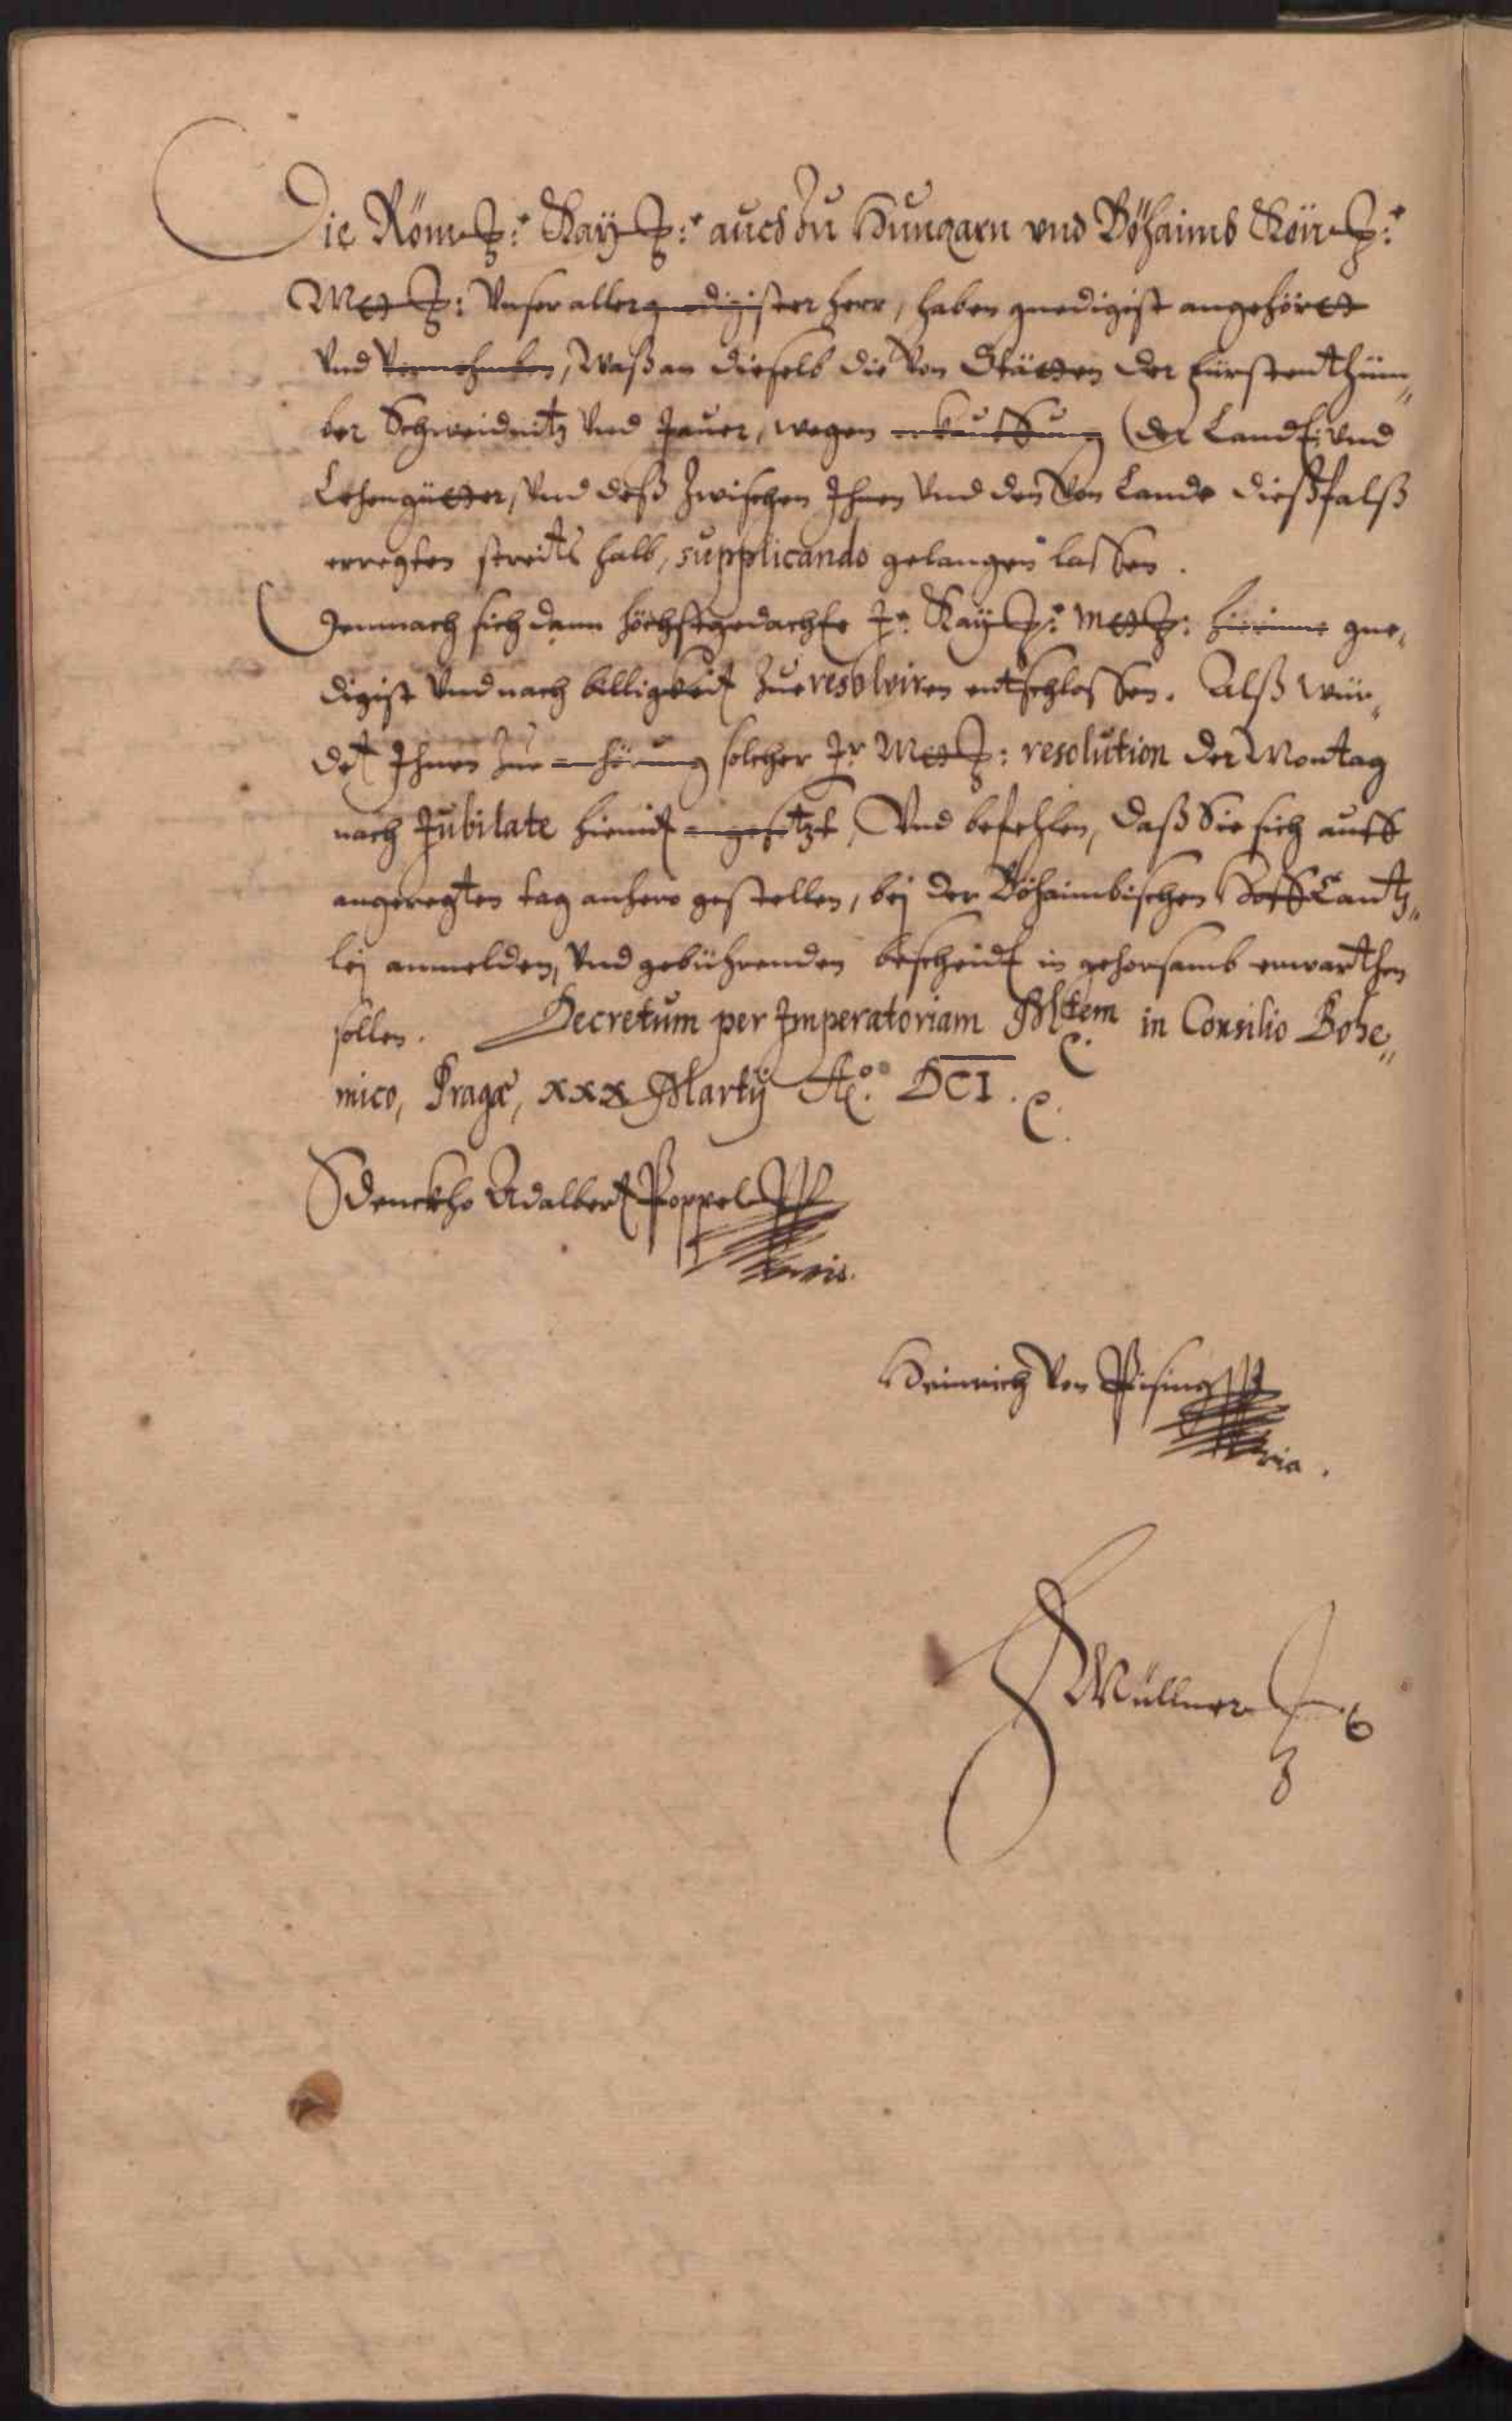 Die Röm: Kay: auch zu Hungarn vnd Böhaimb Kön:
Mtt: Vnser allergnedigister Herr, haben gnedigist angehört
Vnd Vernohmben, Waß an dieselb die Von Stätten der Fürstenthüm„
ber Schweidnitz Vnd Jauer, wegen erkauffung der Landt: vnd
Lehengüetter, Vnd deß Zwischen Ihnen Vnd den Von Lande dießfalß
erregten streits halb, supplicando gelangen lassen.
Demnach sich dann höchstgedachte Ir: Kay: Mtt: hierinne gne„
digist Vnd nach billigkeit Zue resolviren entschlossen. Alß wür„
det Ihnen Zue anhörung solcher Ir Mtt: resolution der Montag
nach Jubilate hiemit angesetzt, Vnd befehlen, daß Sie sich auff
angeregten tag anhero gestellen, bej der Böhaimbischen HoffCantz„
lej anmelden, Vnd gebührenden bescheidt in gehorsamb erwarthen
sollen. Decretum per Imperatoriam Mtem in Consilio Bohe„
mico, Pragæ, xxx Martij Ao. DCI.
Sdenckho Adalbert Poppel
Heinrich Von Pisnig
Müllner